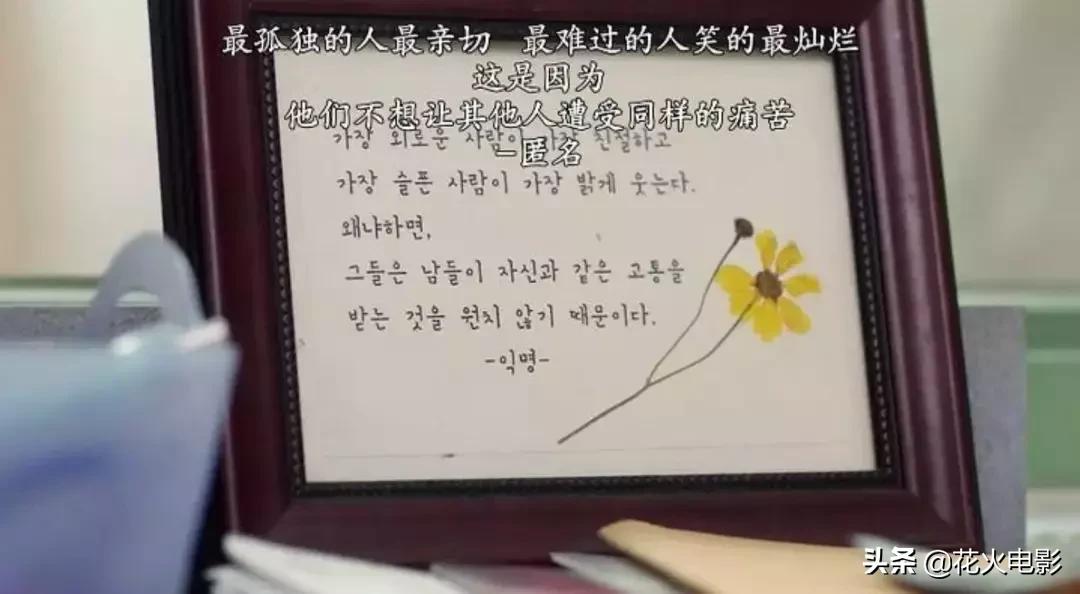 最孤独的人最亲切 最难过的人笑的最灿烂
这是因为
他们不想让其他人遭受同样的痛苦
-匿名
가장 외로운 사람이 가장 친절하고
가장 슬픈 사람이 가장 밝게 웃는다.
왜냐하면,
그들은 남들이 자신과 같은 고통을
받는 것을 원치 않기 때문이다.
-익명-
头条 @花火电影